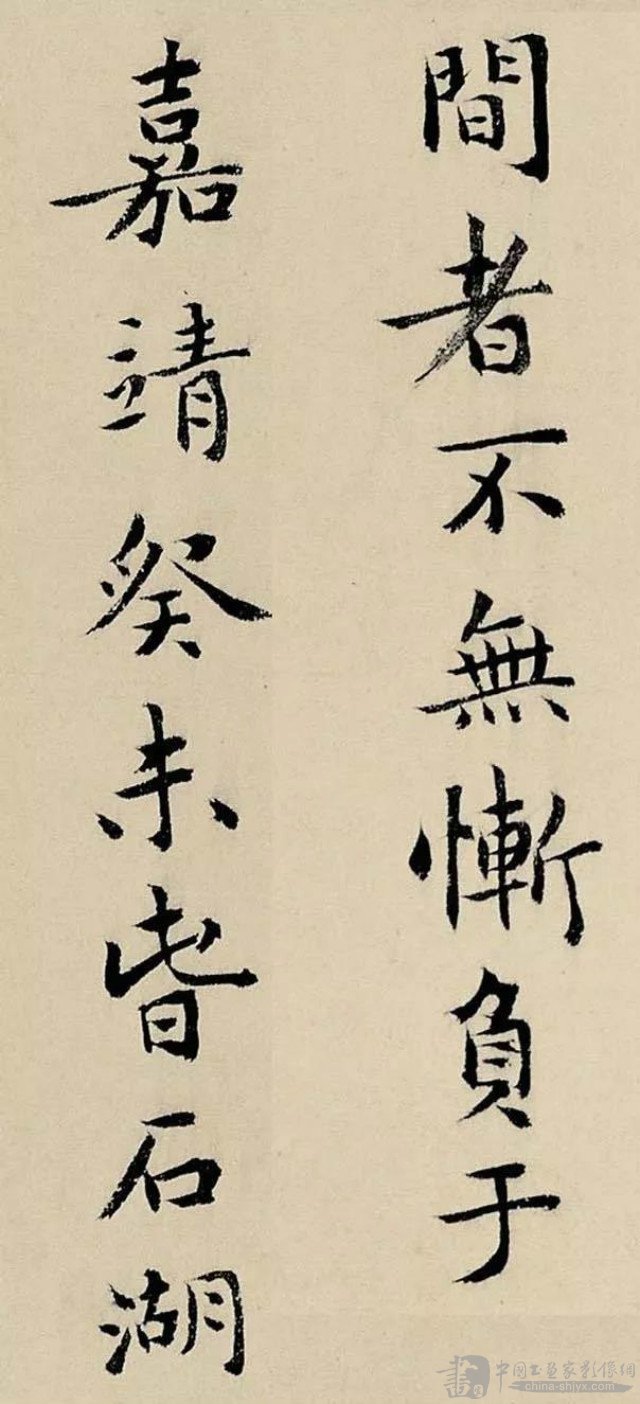 間者不無慚負于
嘉靖癸未時石湖
書 中國書畫家影像網
china-shiyx.com